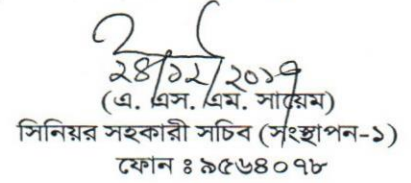 ২৪/১২/২০১৭
(এ. এস. এম. সায়েম)
সিনিয়র সহকারী সচিব (সংস্থাপন-১)
ফোন ঃ ৯৫৬৪০৭৮